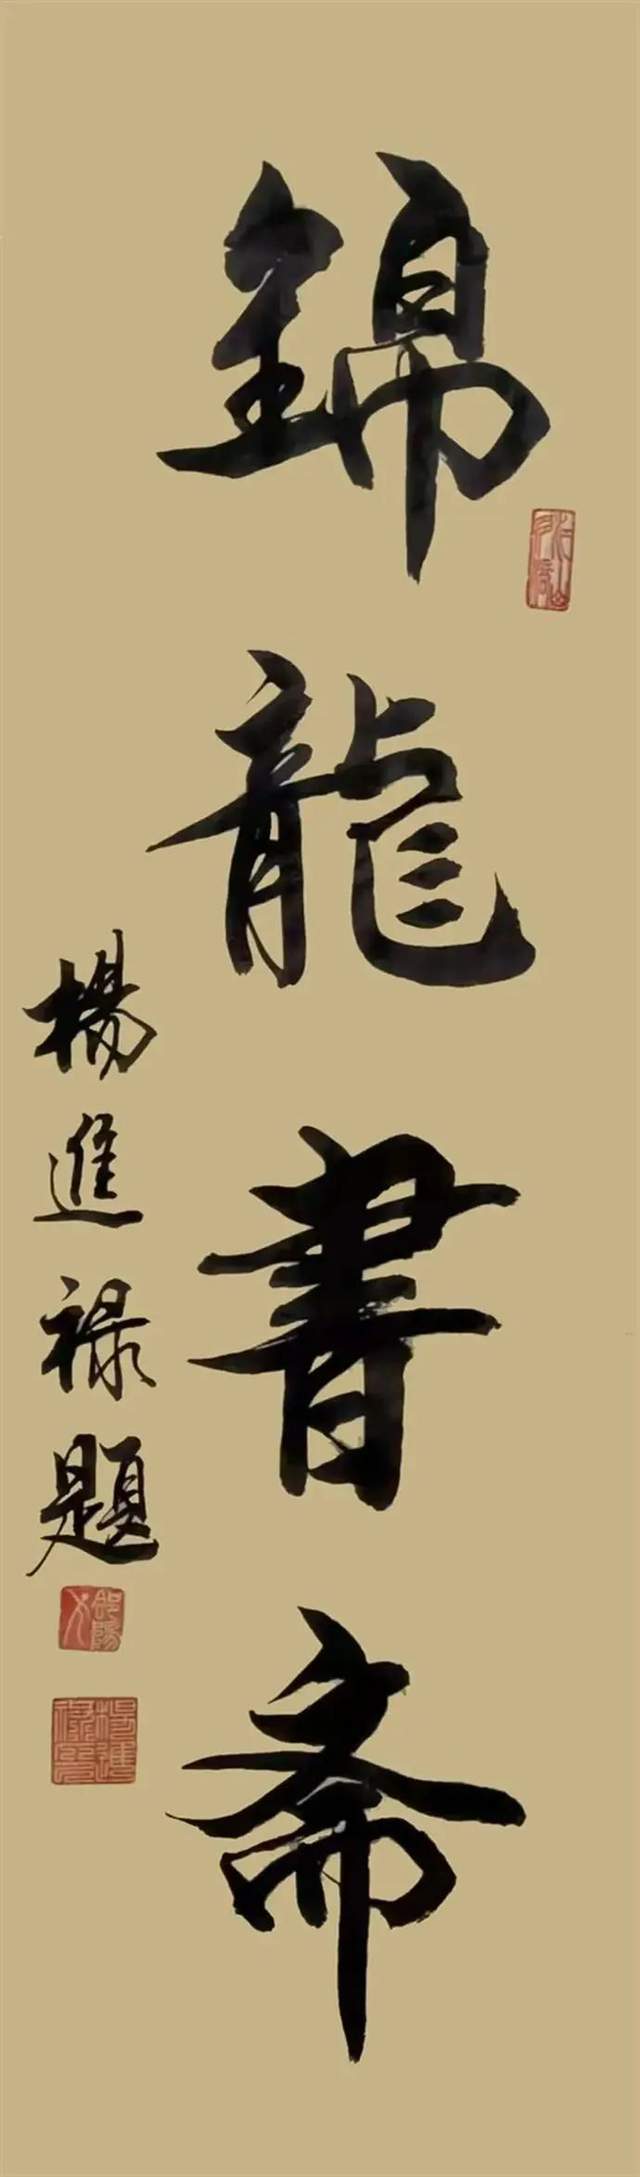 錦龍書斋
楊進祿題